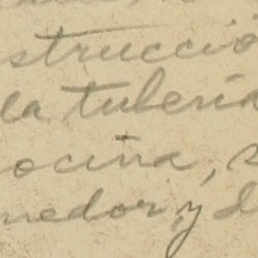 strucció
la tubería
ocina, s
medor, y d